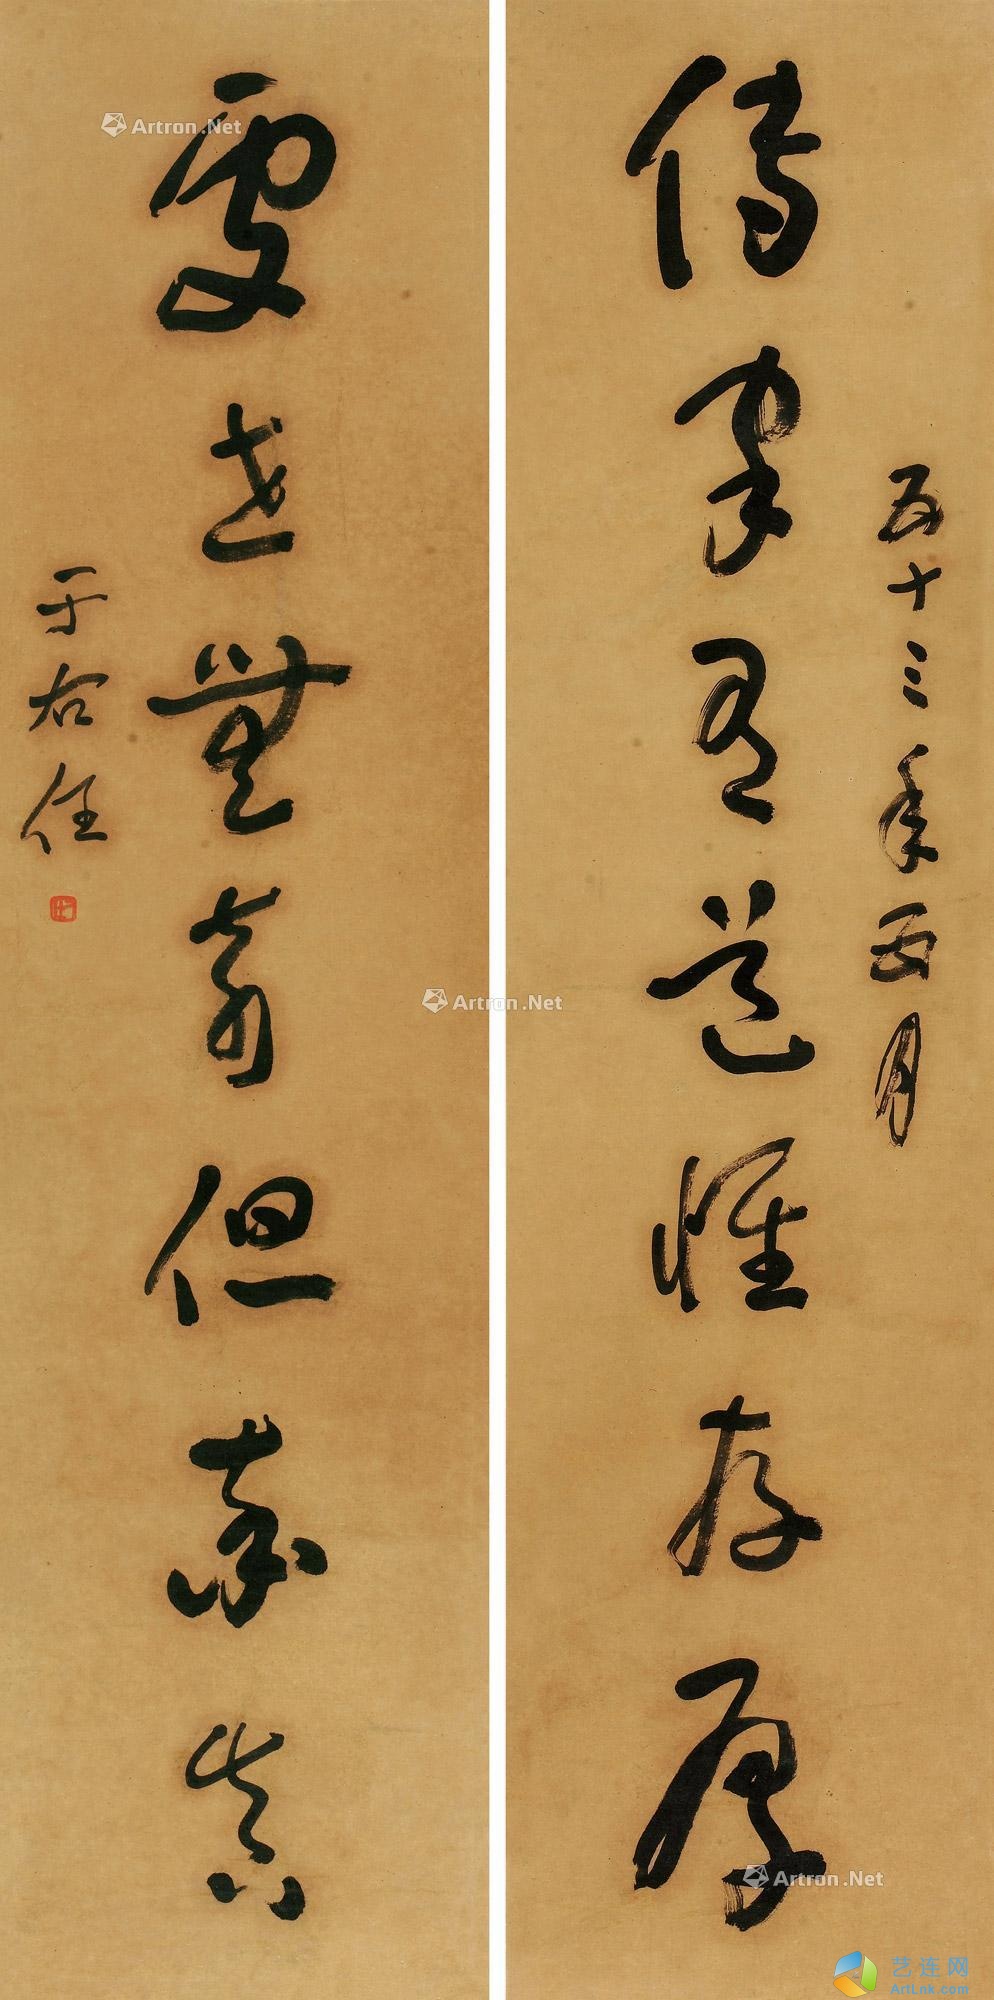 傳家有道惟存厚
五十三年五月
處世無奇但率真
于右任
Artron.Net
Artron.Net
Artron.Net
艺连网
ArtLnk.com